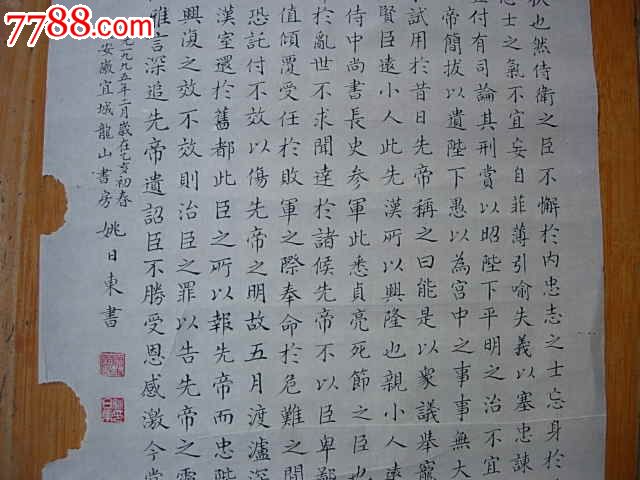 7788.com
秋也然侍衛之臣不懈於內忠志之士忘身於
志士之氣不宜妄自菲薄引喻失義以塞忠諫
付有司論其刑賞以昭陛下平明之治不宜
帝簡拔以遺陛下愚以為宮中之事事無大
試用於昔日先帝稱之曰能是以衆議舉寵
賢臣遠小人此先漢所以興隆也親小人遠
侍中尚書長史參軍此悉貞亮死節之臣也
於亂世不求聞達於諸候先帝不以臣卑鄙
值傾覆受任於敗軍之際奉命於危難之間
恐託付不效以傷先帝之明故五月渡瀘深
漢室還於舊都此臣之所以報先帝而忠陛
興復之效不效則治臣之罪以告先帝之靈
雅言深追先帝遺詔臣不勝受恩感激今當
九九五年二月歲在乙亥初春
安徽宜城龍山書房 姚日東書